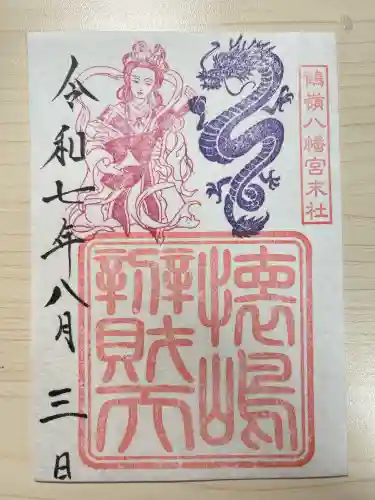 鶴嶺八幡宮末社
懐嶋
辨財天
令和七年八月三日